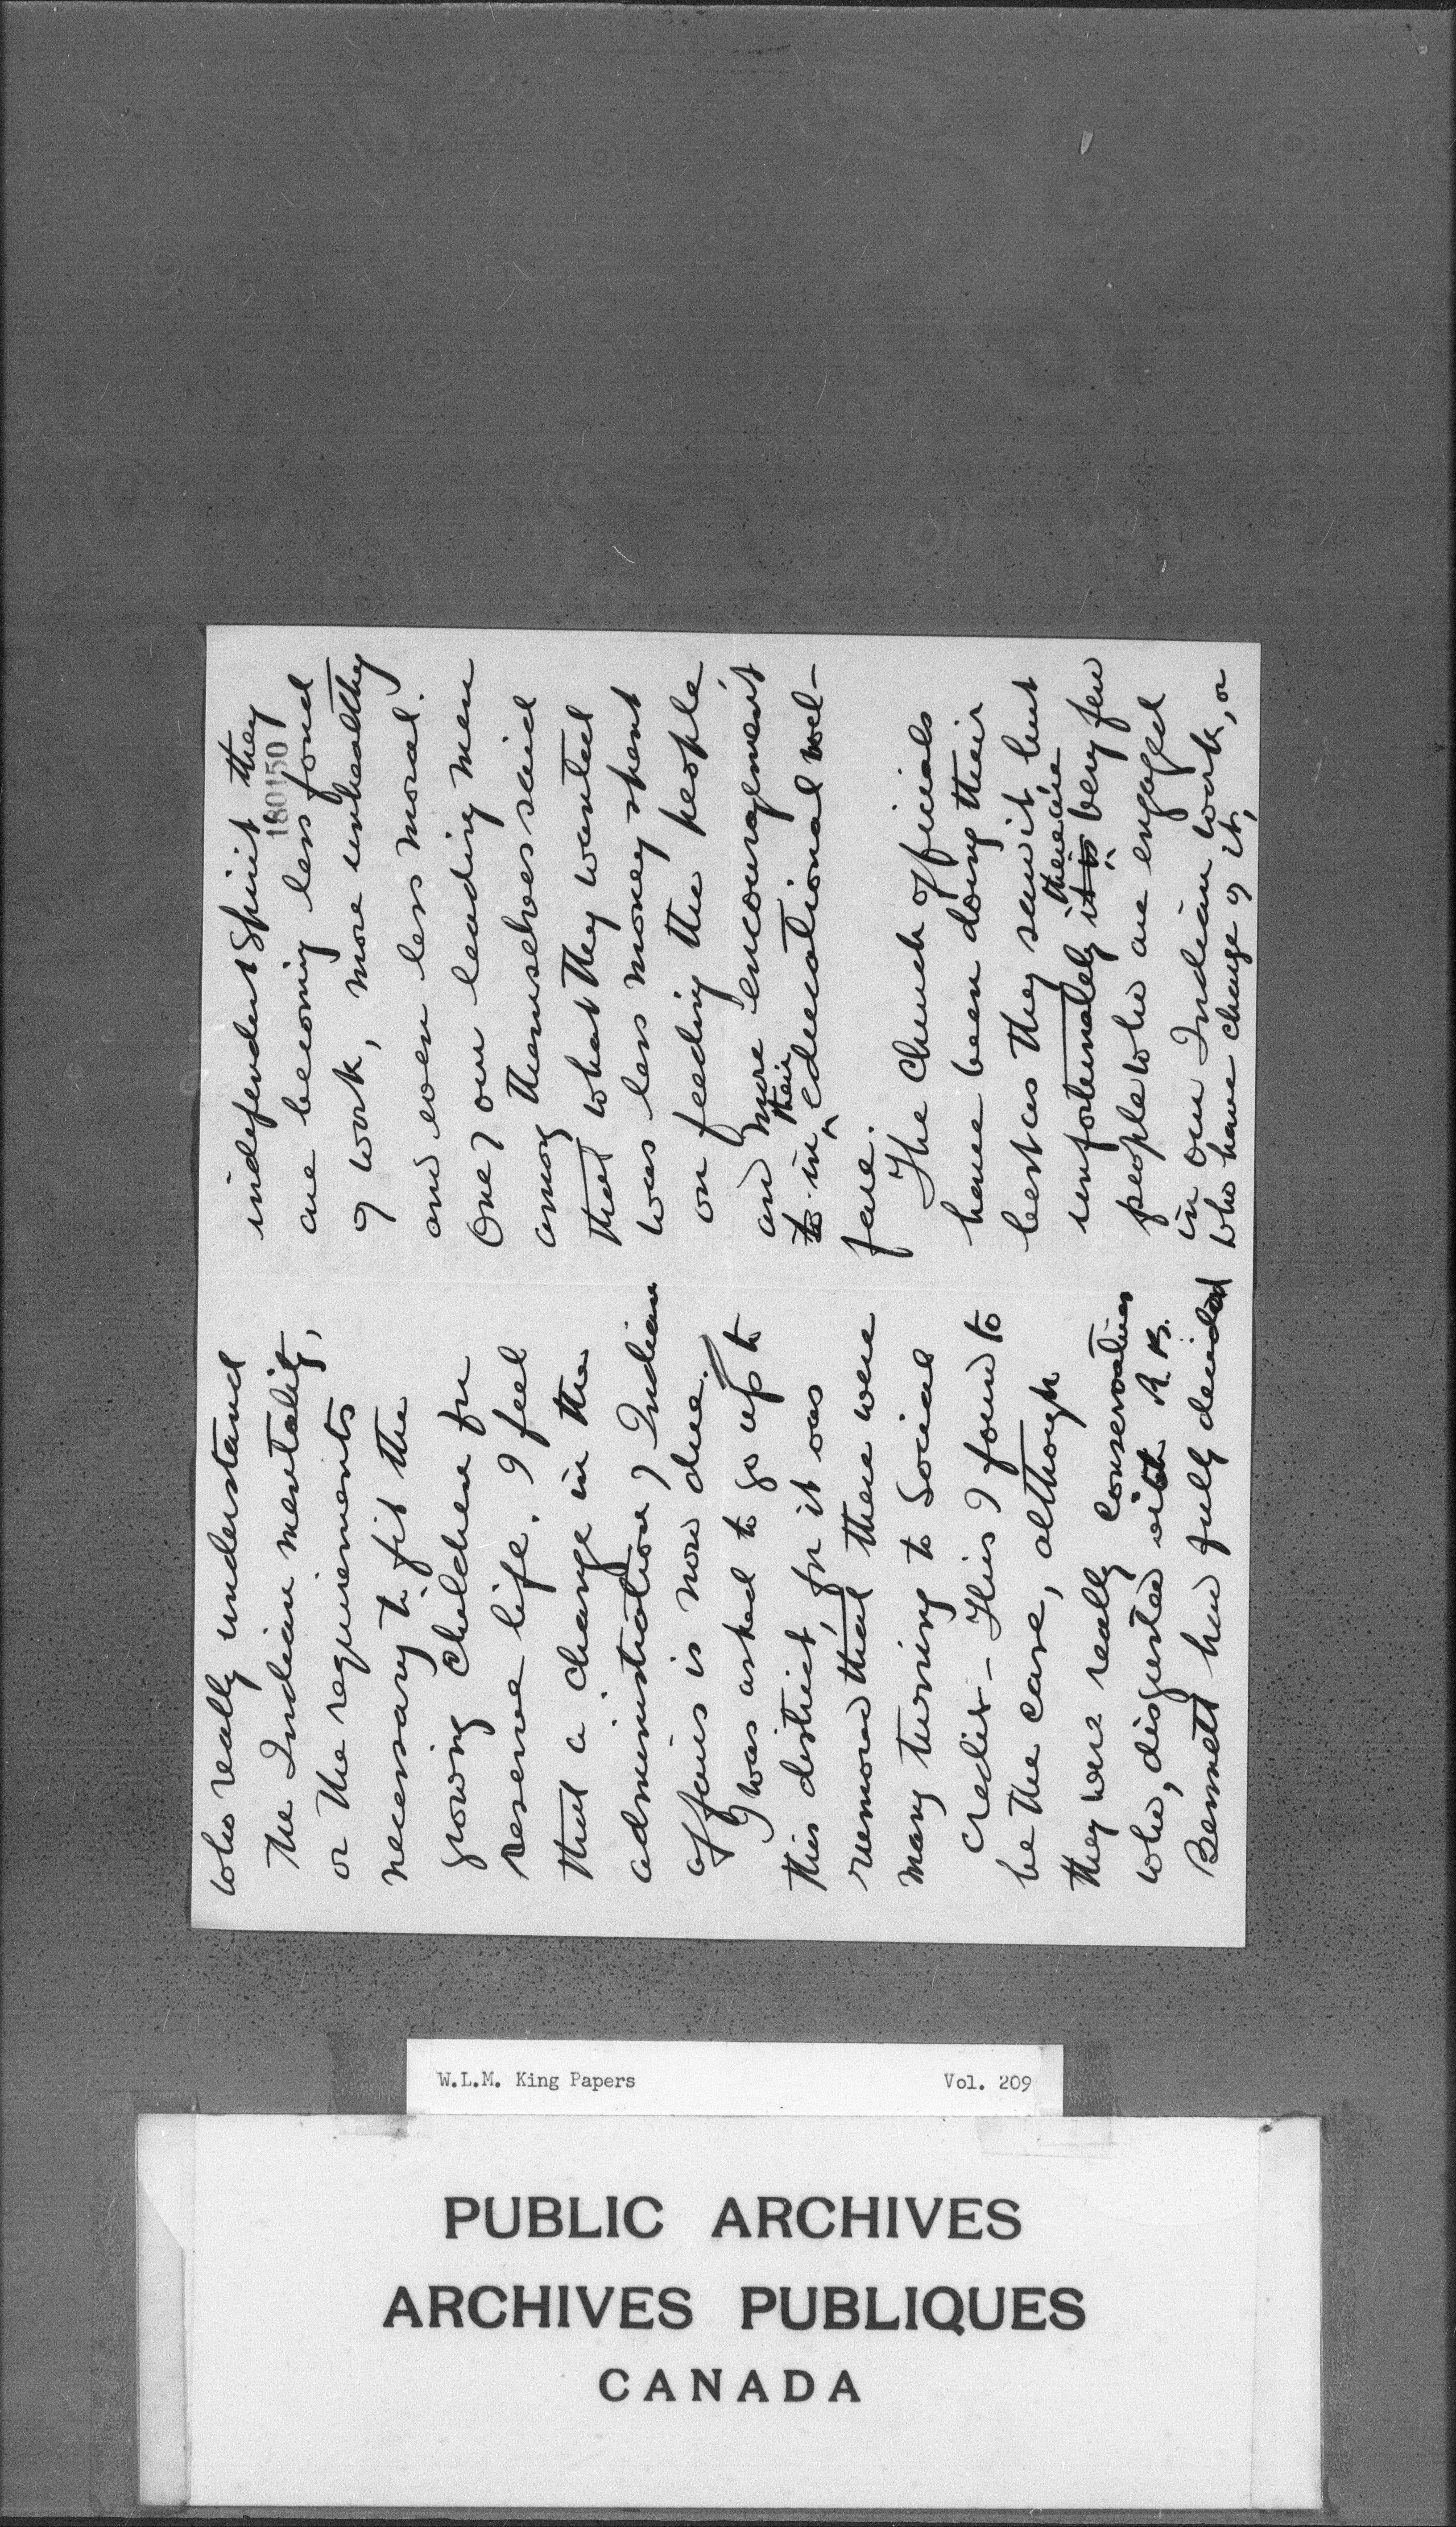 independent spirit they
180150
are becoming less fond
of work, more unhealthy
and even less moral.
One of our leading men
among themselves said
that what they wanted
was less money spent
on feeding the people
and more encouragement
to in their educational wel-
fare.
The Church officials
have been doing their
best as they saw it but
unfortunately it is there are very few
people who are engaged
in our Indian work, or
who have charge of it,
who really understand
the Indian mentality,
or the requirements
necessary to fit the
growing children for
reserve life. I feel
that a change in the
administration of Indian
affairs is now due.
I was asked to go up to
this district, for it was
rumored that there were
many turning to Social
Credit - This I found to
be the case, although
they were really conservatives
who, disgusted with R. B.
Bennett had fully decided
W.L.M. King Papers Vol. 209
PUBLIC ARCHIVES
ARCHIVES PUBLIQUES
CANADA